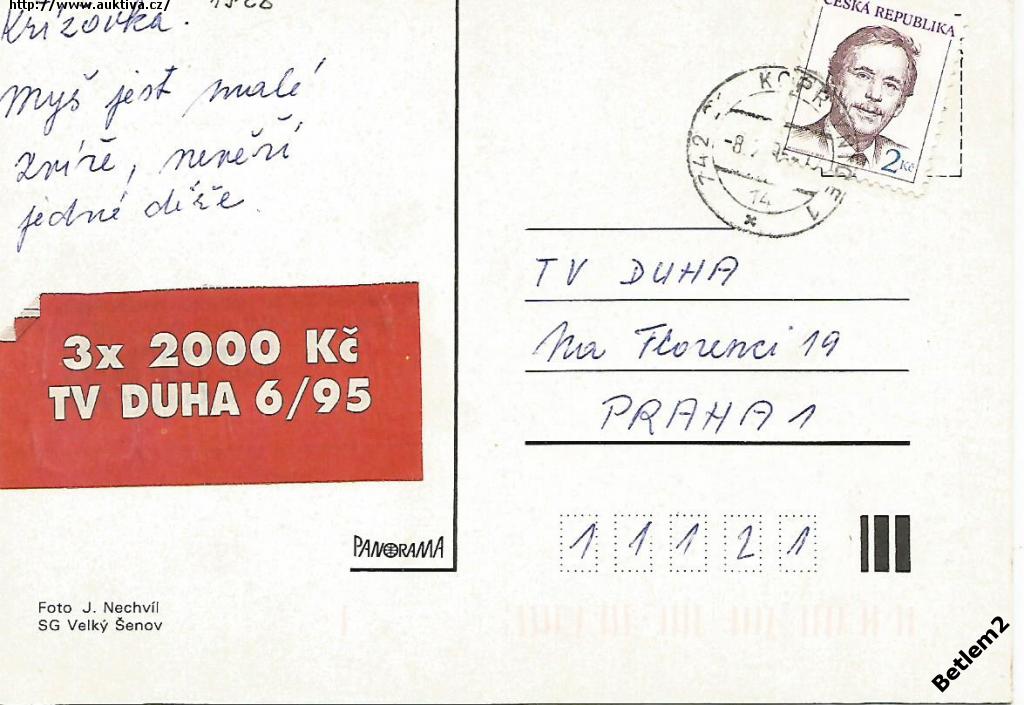 http://www.auktiva.cz/
Křížovka.
Myš jest malé
zvíře, nevěří
jedné díře.
3x 2000 Kč
TV DUHA 6/95
PANORAMA
Foto J. Nechvíl
SG Velký Šenov
ČESKÁ REPUBLIKA
2 Kč
742 21
KOPŘIVNICE 1
14
TV DUHA
Na Florenci 19
PRAHA 1
11121
Betlem2